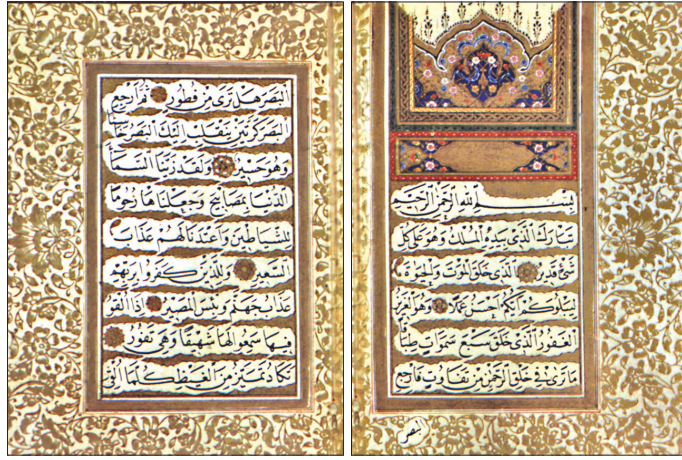 بسم الله الرحمن الرحيم
تبارك الذي بيده الملك وهو على كل
شئ قدير الذي خلق الموت والحيوة
ليبلوكم ايكم احسن عملا وهو العزيز
الغفور الذي خلق سبع سموات طباقا
ما ترى في خلق الرحمن من تفاوت فارجع
البصر
البصر هل ترى من فطور ثم ارجع
البصر كرتين ينقلب اليك البصر خاسئا
وهو حسير ولقد زينا السماء
الدنيا بمصابيح وجعلناها رجوما
للشياطين واعتدنا لهم عذاب
السعير وللذين كفروا بربهم
عذاب جهنم وبئس المصير اذا القوا
فيها سمعوا لها شهيقا وهي تفور
تكاد تميز من الغيظ كلما القى